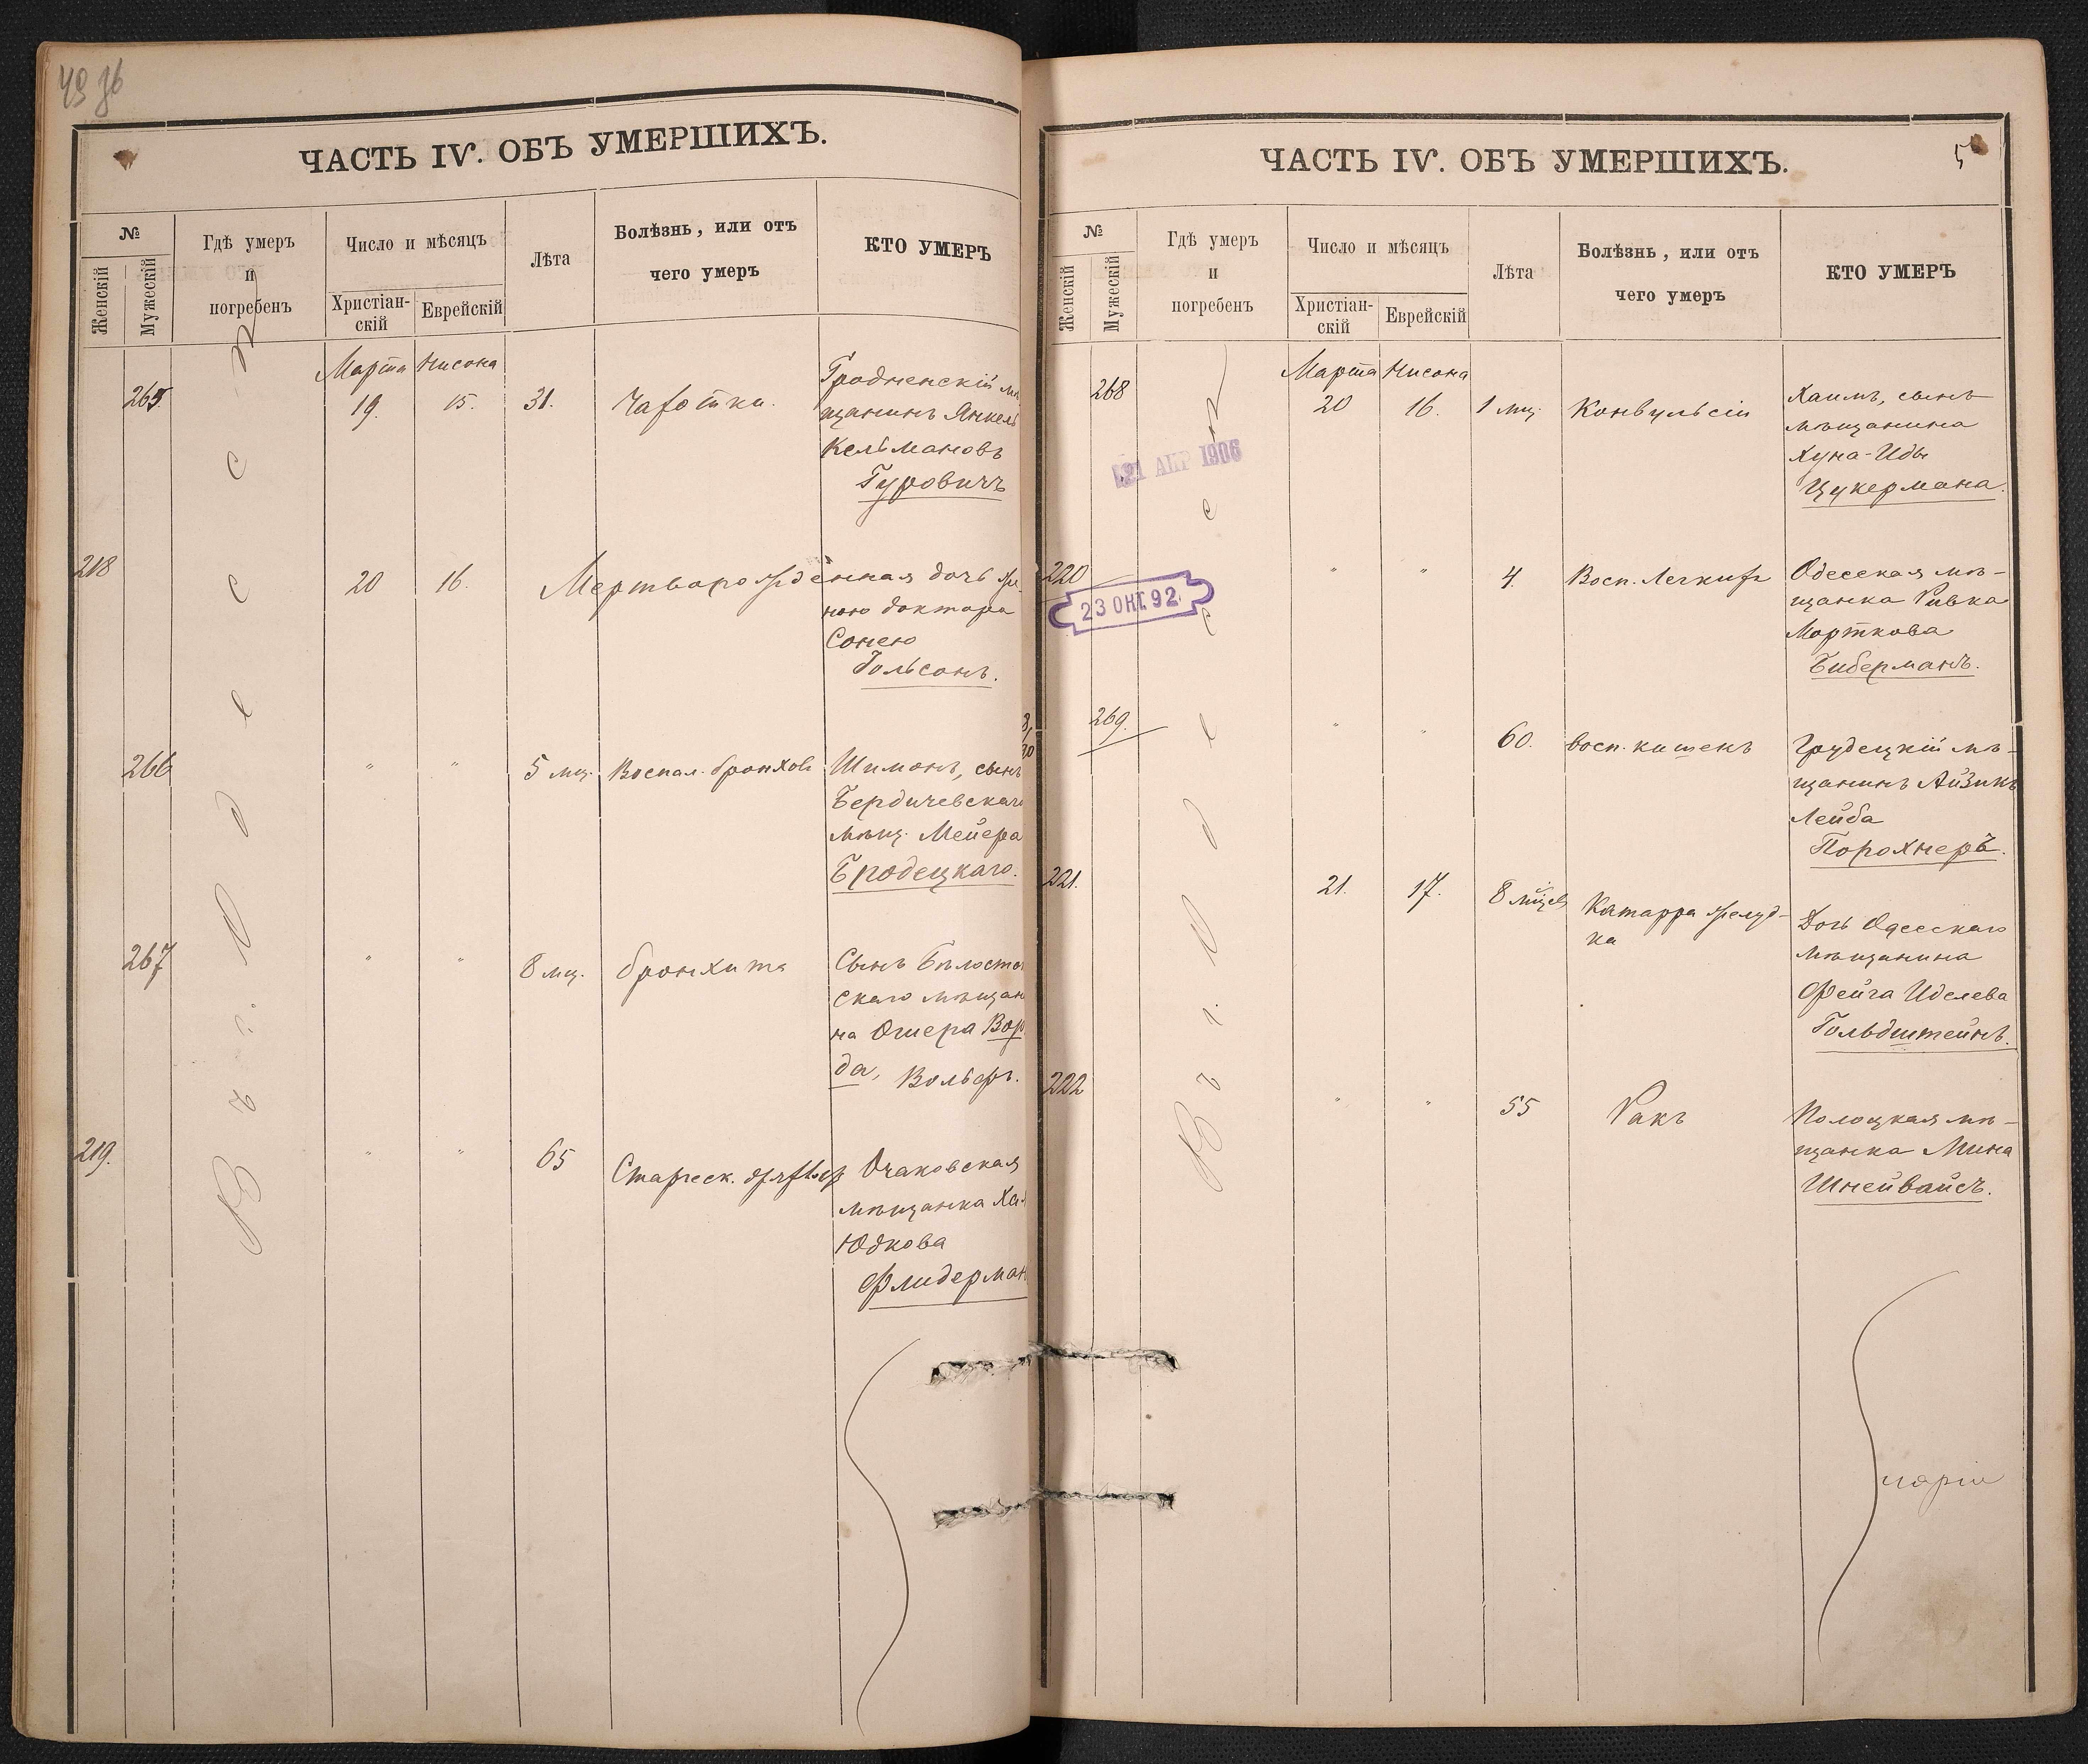 49 36
ЧАСТЬ IV. ОБЪ УМЕРШИХЪ.
№
Женскій
Мужескій
Гдѣ умеръ
и
погребенъ
Число и мѣсяцъ
Христіан-
скій
Еврейскій
Лѣта
Болѣзнь, или отъ
чего умеръ
КТО УМЕРЪ
Въ г. Одессѣ
Марта Нисона
265 19. 15. 31. Чахотки. Гродненскій мѣ
щанинъ Янкель
Кельмановъ
Гуровичъ
218 20 16. Мертворожденная дочь же-
ною доктора
Сонею
Гольсонъ.
266 " " 5 мц. Воспал. бронховъ Шимонъ, сынъ
Бердичевскаго
мѣщ. Мейера
Бродецкаго.
267 " " 8 мц. бронхита Сынъ Бѣлосто
скаго мѣщан
на Ошера Вор
да, Вольфъ.
219. " " 65 Старческ. дряхлость Очаковская
мѣщанка Ха
Юдкова
Флидерман
ЧАСТЬ IV. ОБЪ УМЕРШИХЪ.
5
№
Женскій
Мужескій
Гдѣ умеръ
и
погребенъ
Число и мѣсяцъ
Христіан-
скій
Еврейскій
Лѣта
Болѣзнь, или отъ
чего умеръ
КТО УМЕРЪ
Въ г. Одессѣ
Марта Нисона
268 20 16. 1 мц. Конвульсіи Хаимъ, сынъ
мѣщанина
Хуна-Иды
Цукермана.
21 АПР 1906
220 " " 4. Восп. Легкихъ Одесская мѣ-
щанка Ривка
Морткова
Биберманъ.
23 ОКТ. 92.
269. " " 60. восп. кишекъ Грудецкій мѣ-
щанинъ Айзикъ
Лейба
Порохнеръ.
221. 21. 17. 8 мѣцевъ Катарра желуд-
ка
Дочь Одесскаго
мѣщанина
Фейга Иделева
Гольдштейнъ.
222 " " 55 Ракъ Полоцкая мѣ-
щанка Мина
Шнейвайсъ.